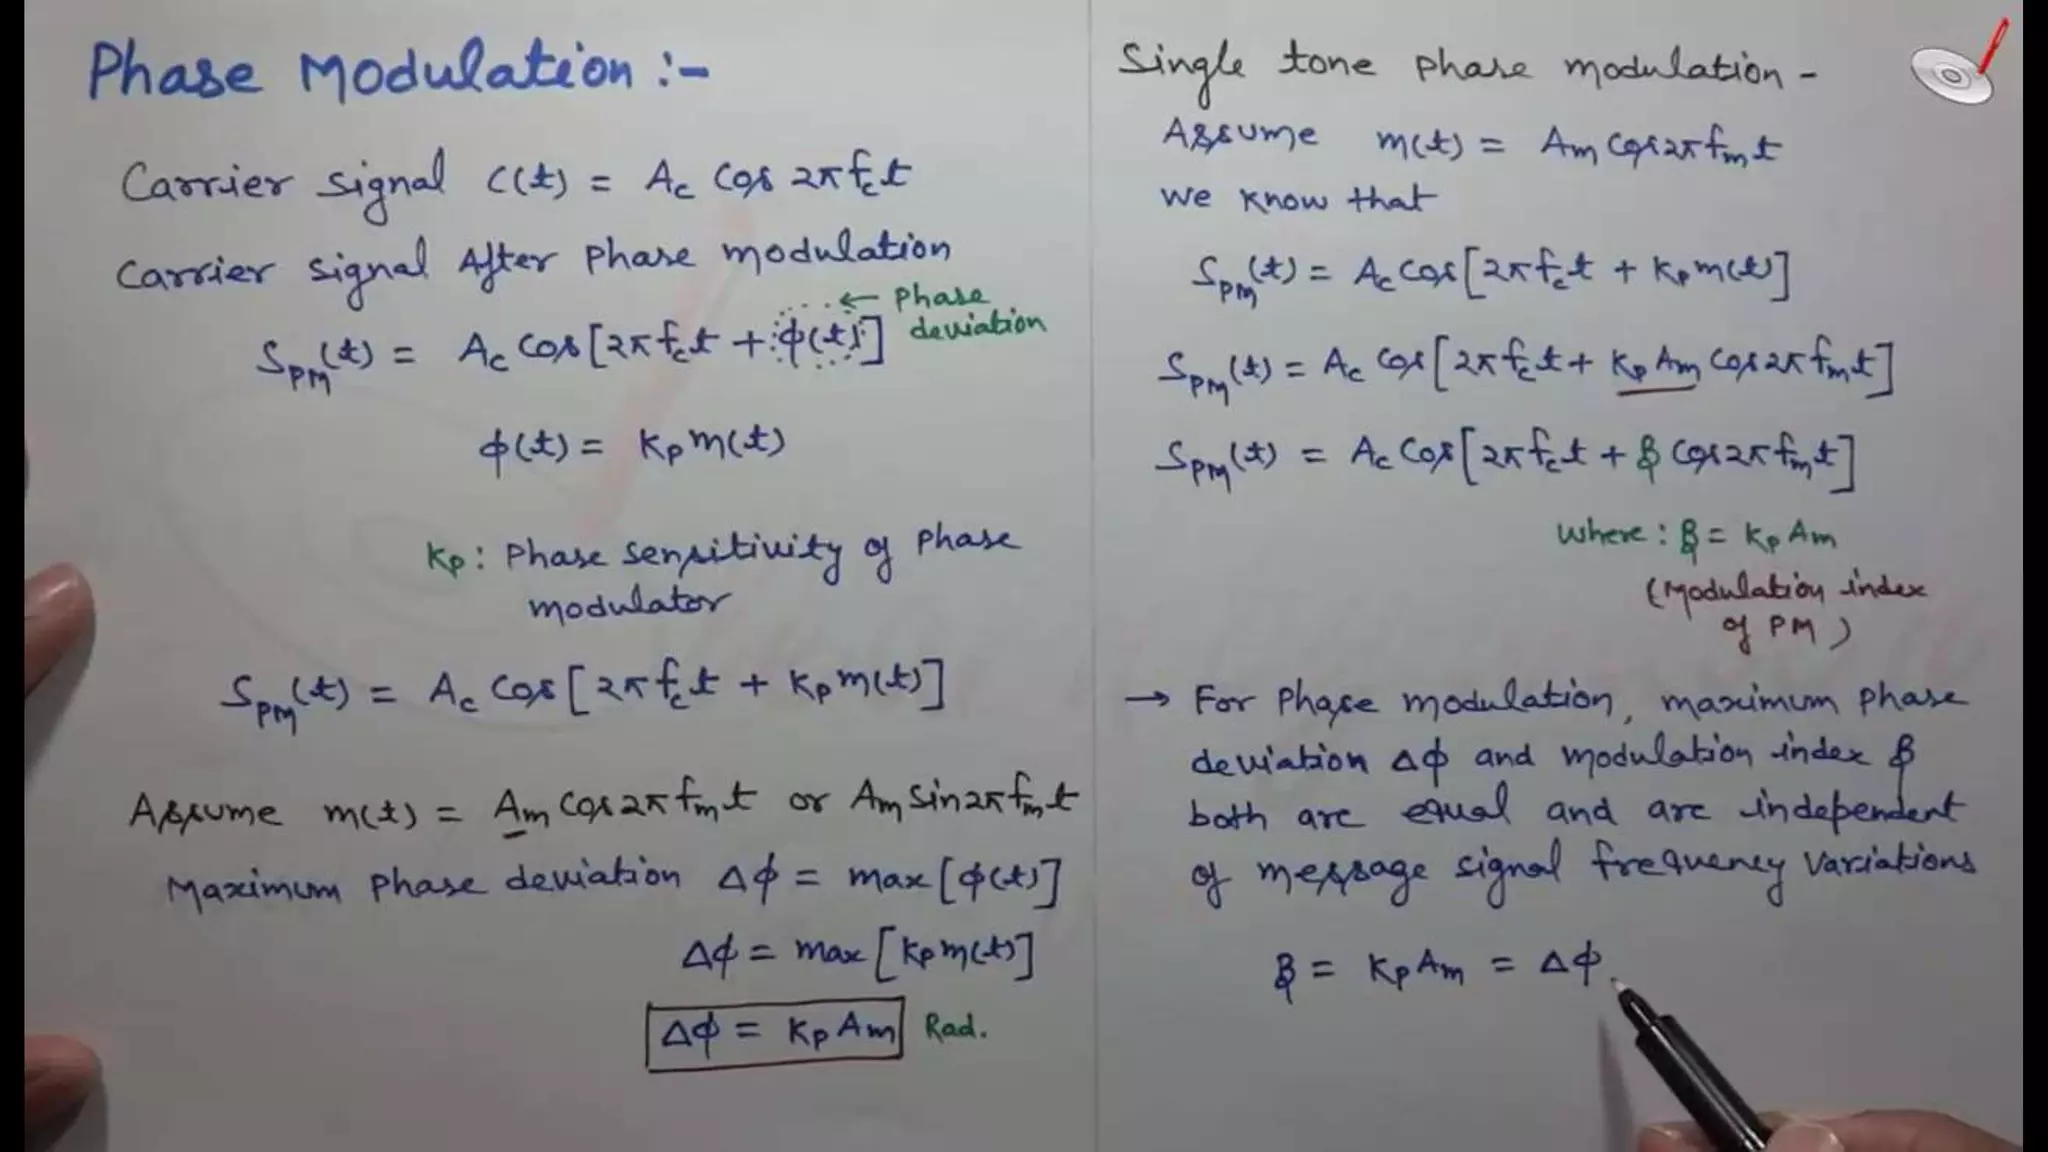 Phase Modulation :-
Carrier signal c(t) = Ac Cos 2πfct
Carrier signal After Phase modulation
SPM(t) = Ac Cos[2πfct + ϕ(t)] ← Phase deviation
ϕ(t) = Kp m(t)
Kp : Phase sensitivity of Phase
modulator
SPM(t) = Ac Cos[2πfct + Kp m(t)]
Assume m(t) = Am Cos2πfmt or Am Sin2πfmt
Maximum Phase deviation Δϕ = max[ϕ(t)]
Δϕ = max[Kp m(t)]
Δϕ = Kp Am Rad.
Single tone Phase modulation -
Assume m(t) = Am Cos2πfmt
We Know that
SPM(t) = Ac Cos[2πfct + Kp m(t)]
SPM(t) = Ac Cos[2πfct + Kp Am Cos2πfmt]
SPM(t) = Ac Cos[2πfct + β Cos2πfmt]
Where : β = Kp Am
(Modulation index
of PM)
→ For Phase modulation, maximum Phase
deviation Δϕ and modulation index β
both are equal and are independent
of message signal frequency variations
β = Kp Am = Δϕ